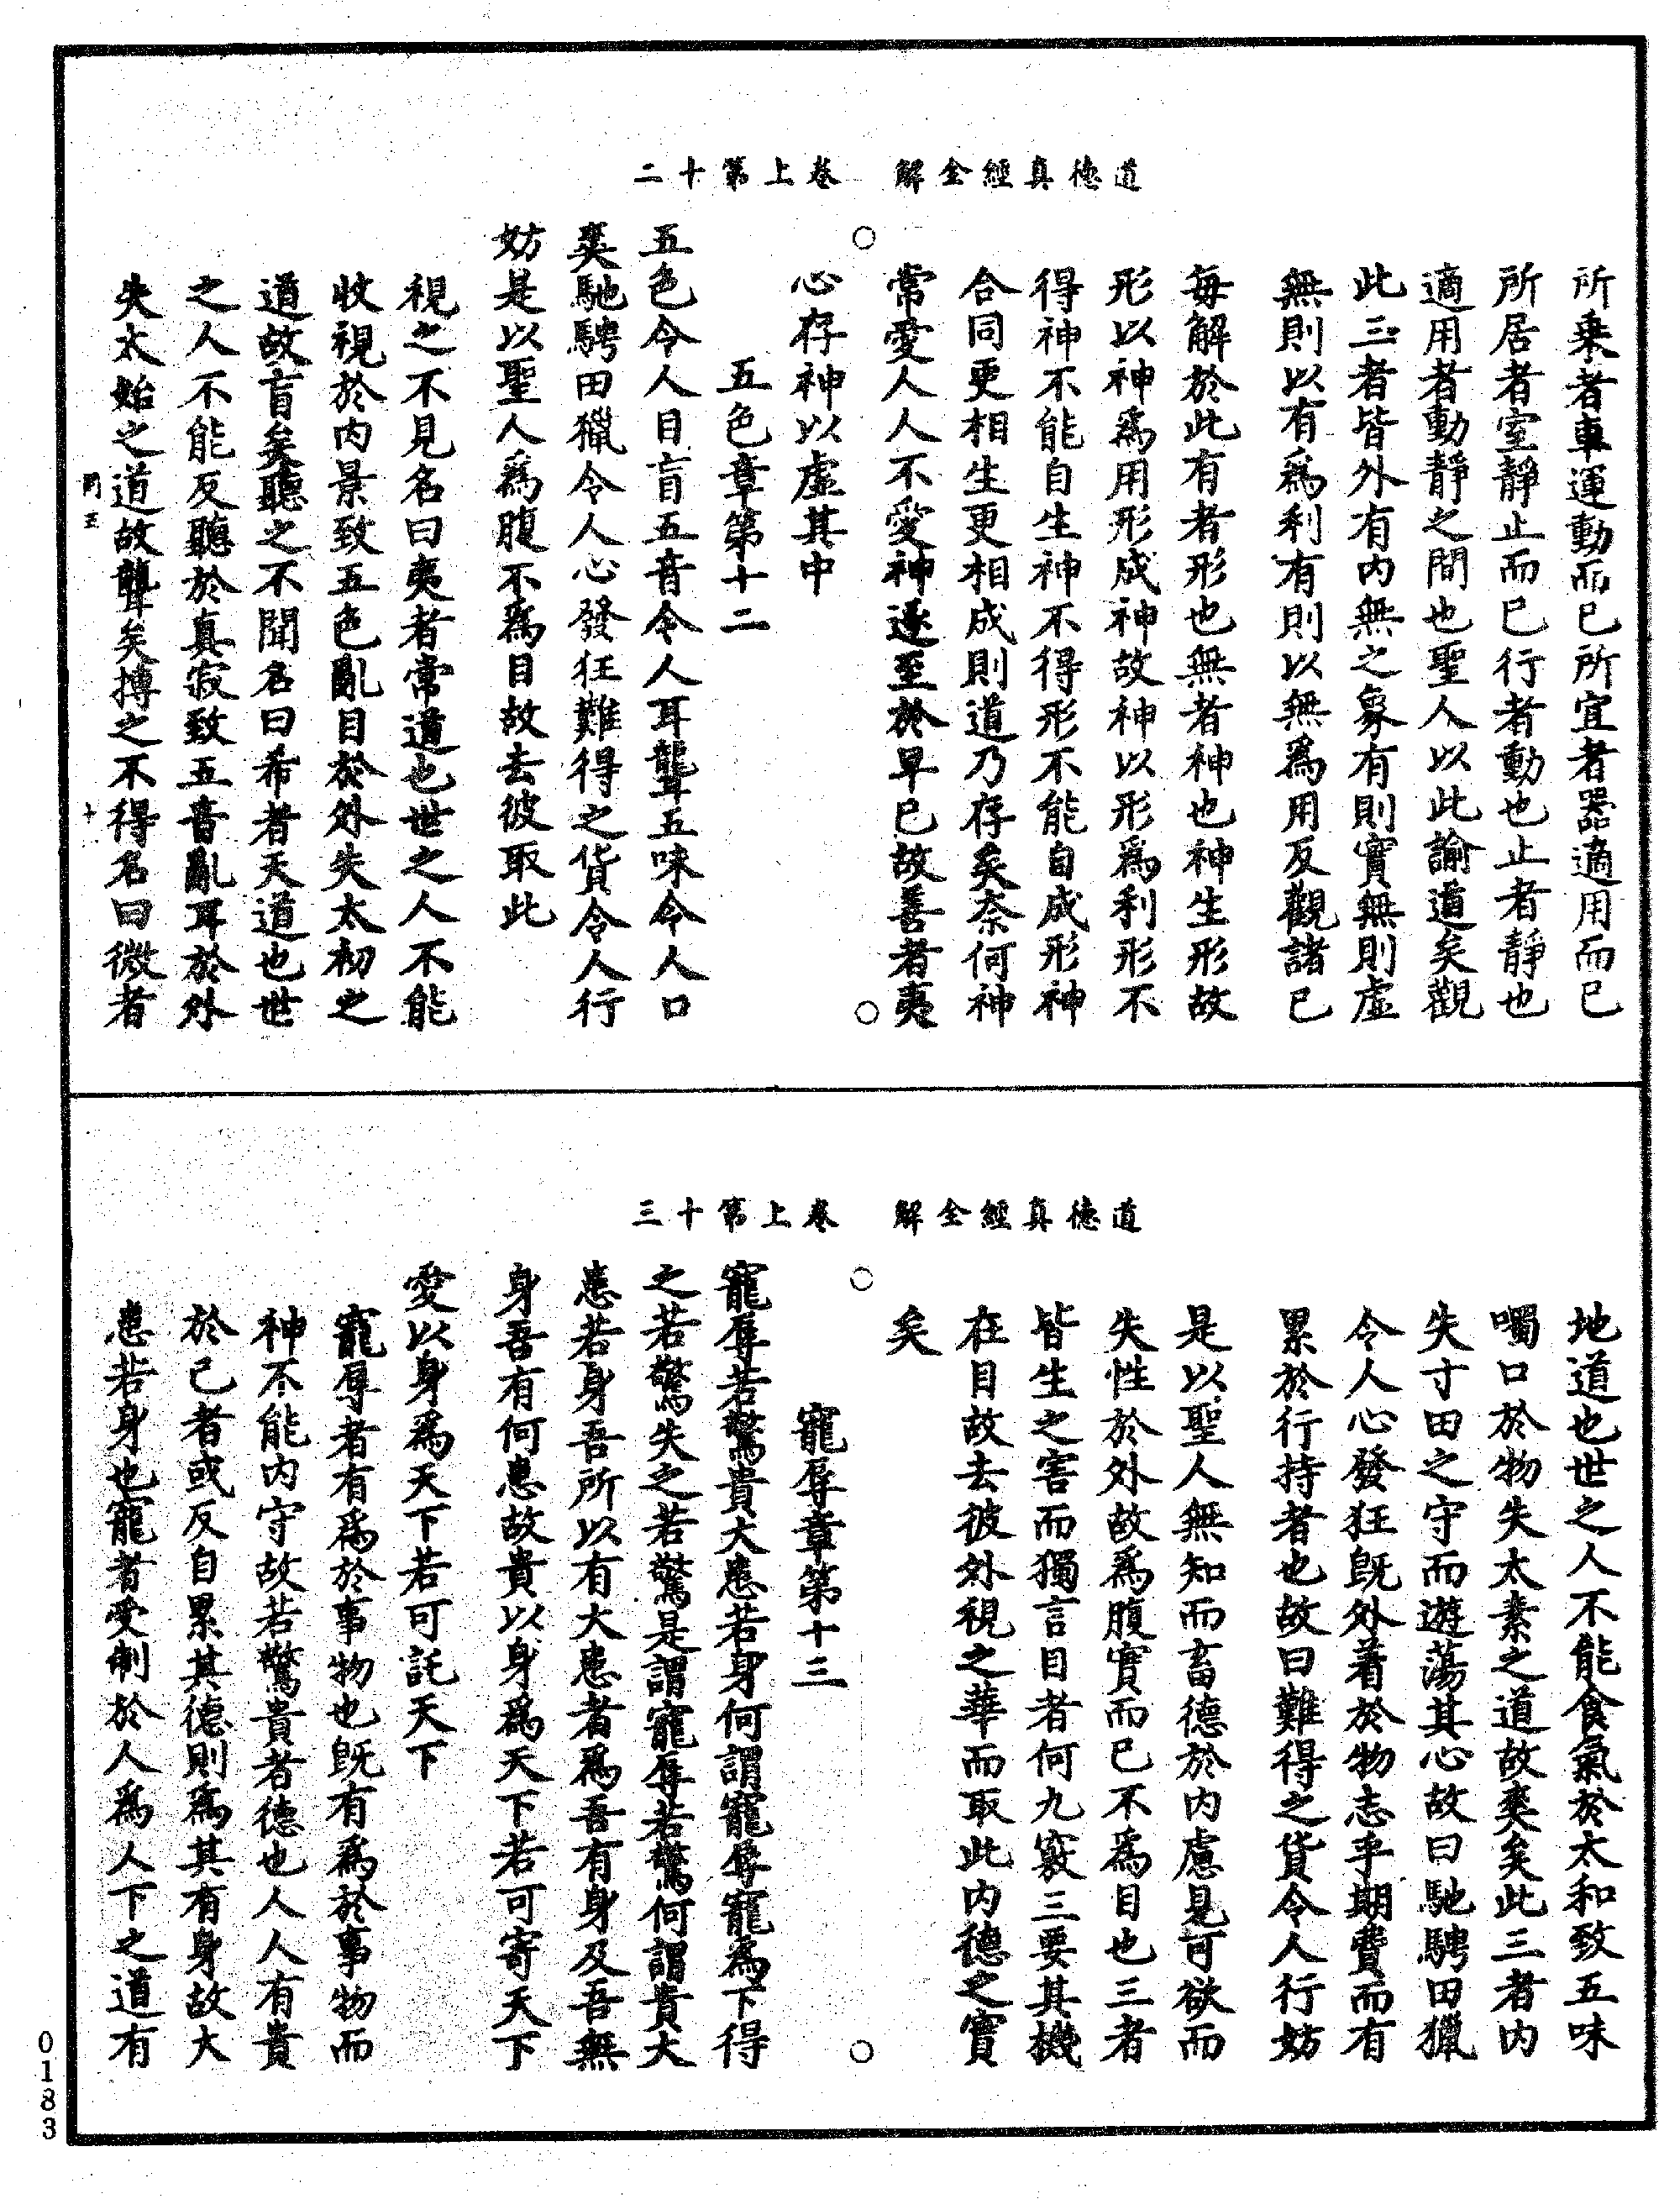 道德真經全解　卷上第十二
所乘者車運動而已所宜者器適用而已
所居者室靜止而已行者動也止者靜也
適用者動靜之間也聖人以此諭道矣觀
此三者皆外有内無之象有則實無則虛
無則以有爲利有則以無爲用反觀諸已
每解於此有者形也無者神也神生形故
形以神爲用形成神故神以形爲利形不
得神不能自生神不得形不能自成形神
合同更相生更相成則道乃存矣奈何神
常愛人人不愛神遂至於早已故善者夷
心存神以虛其中
五色章第十二
五色令人目盲五音令人耳聾五味令人口
爽馳騁田獵令人心發狂難得之貨令人行
妨是以聖人爲腹不爲目故去彼取此
視之不見名曰夷者常道也世之人不能
收視於内景致五色亂目於外失太初之
道故盲矣聽之不聞名曰希者天道也世
之人不能反聽於真寂致五音亂耳於外
失太始之道故聾矣搏之不得名曰微者
道德真經全解　卷上第十三
地道也世之人不能食氣於太和致五味
噣口於物失太素之道故爽矣此三者内
失寸田之守而遊蕩其心故曰馳騁田獵
令人心發狂旣外着於物志乎期費而有
累於行持者也故曰難得之貨令人行妨
是以聖人無知而畜德於内慮見可欲而
失性於外故爲腹實而已不爲目也三者
皆生之害而獨言目者何九竅三要其機
在目故去彼外視之華而取此内德之實
矣
寵辱章第十三
寵辱若驚貴大患若身何謂寵辱寵爲下得
之若驚失之若驚是謂寵辱若驚何謂貴大
患若身吾所以有大患者爲吾有身及吾無
身吾有何患故貴以身爲天下若可寄天下
愛以身爲天下若可託天下
寵辱者有爲於事物也旣有爲於事物而
神不能内守故若驚貴者德也人人有貴
於己者或反自累其德則爲其有身故大
患若身也寵者受制於人爲人下之道有
0183